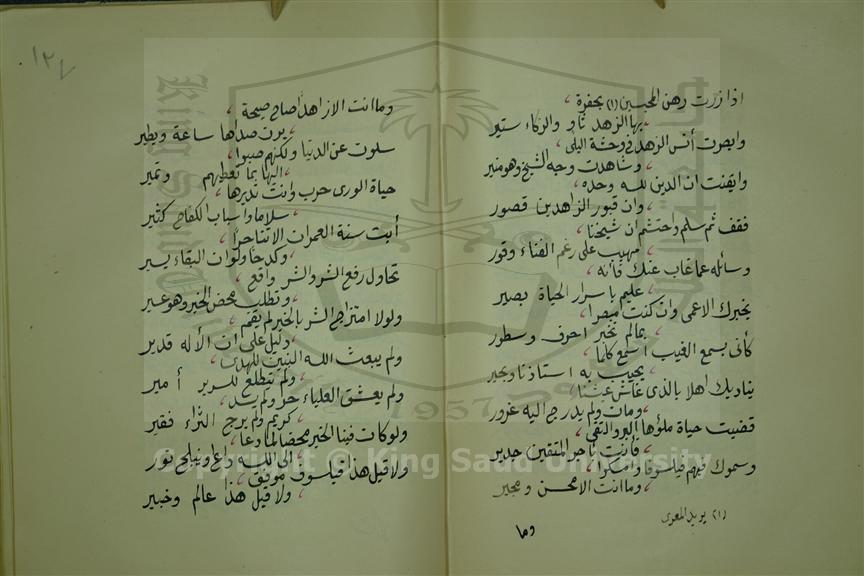 اذا زرت رهن المحبسين (١) بحفرة ،
بها الزهد ثاو والذكاء ستير
وابصرت أنس الزهد في وحشة البلى ،
وشاهدت وجه الشيخ وهو منير
وايقنت ان الدين لله وحده ،
وان قبور الزاهدين قصور
فقف ثم سلم واحتشم ان شيخنا ،
مهيب على رغم الفناء وقور
وسائله عما غاب عنك فانه ،
عليم باسرار الحياة بصير
يخبرك الاعمى وان كنت مبصرا ،
بمالم تخبر احرف وسطور
كأنى بسمع الغيب اسمع كلما ،
يجيب به استاذنا ويحير
يناديك اهلا بالذى عاش عيشنا ،
ومات ولم يدرج اليه غرور
قضيت حياة ملؤها البر والتقى ،
فأنت بأجر المتقين جدير
وسموك فيهم فيلسوفا وامسكوا ،
وما انت الا محسن ومجير
(١) يريد المعرى
وما
١٢٧
وما انت الا زاهد صاح صيحة ،
يرن صداها ساعة ويطير
سلوت عن الدنيا ولكنهم صبوا ،
اليها بما تعطيهم وتمير
حياة الورى حرب وانت تديرها ،
سلاما واسباب الكفاح كثير
أبت سنة العمران الا تناحرا ،
وكدحا ولو ان البقاء يسير
تحاول رفع الشر والشر واقع ،
وتطلب محض الخير وهو عسير
ولولا امتزاج الشر بالخير لم يقم ،
دليل على ان الأله قدير
ولم يبعث الله النبيين للهدى ،
ولم يتطلع للسرير أمير
ولم يعشق العلياء حر ولم يسد ،
كريم ولم يرج الثراء فقير
ولو كان فينا الخير محضا لما دعا ،
الى الله داع وتبلج نور
ولا قيل هذا فيلسوف موفق ،
ولا قيل هذا عالم وخبير
Copyright © King Saud University
1957